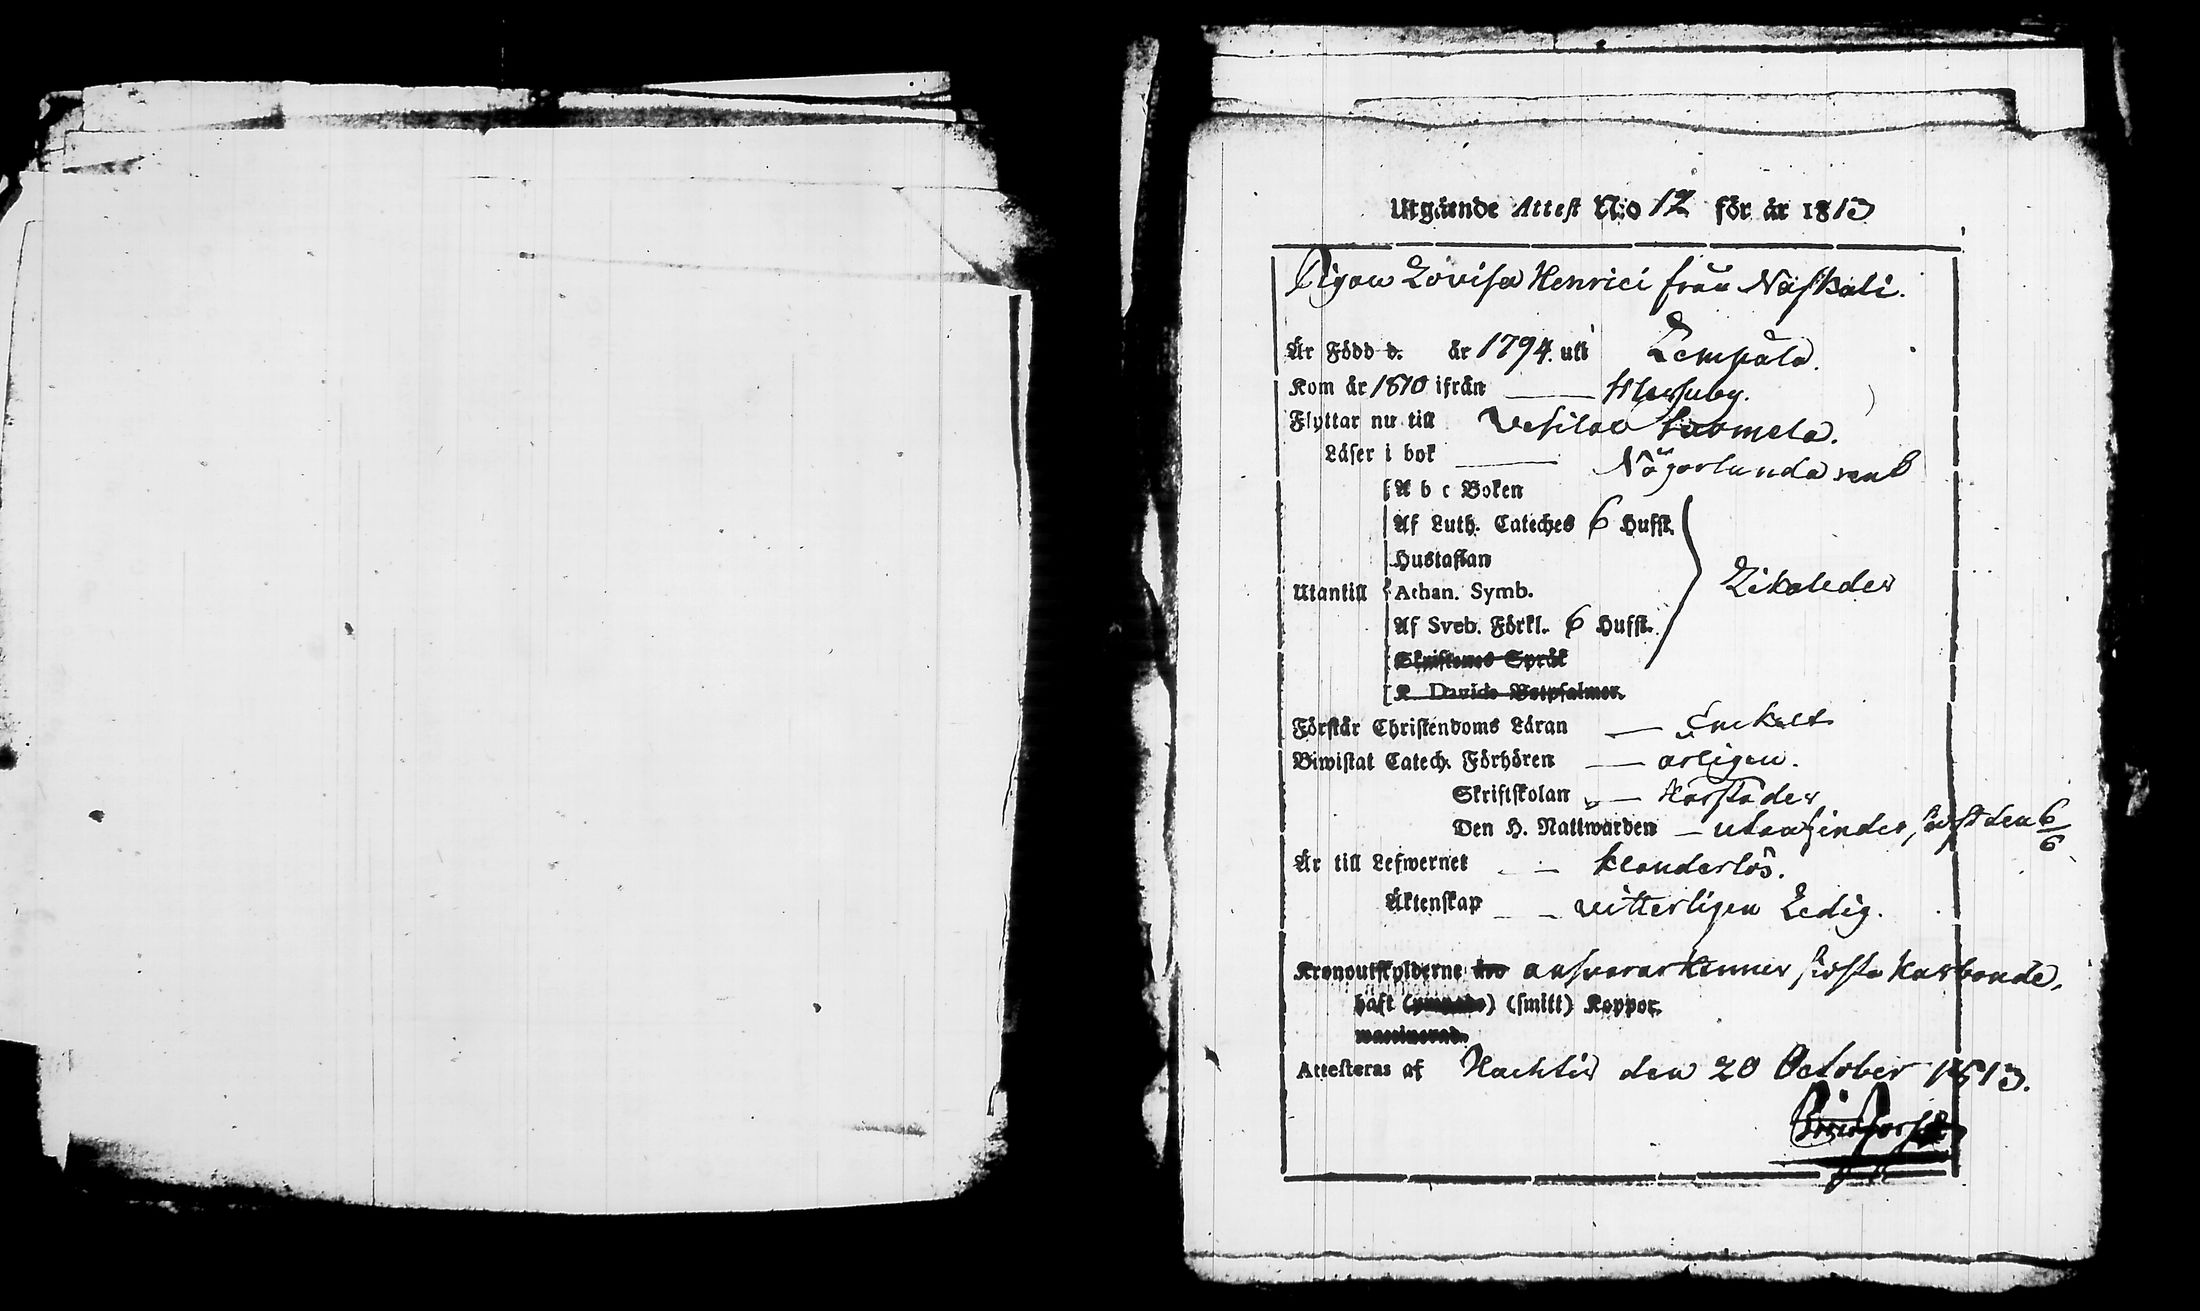 Utgående Attest No 12 för år 1813
Pigan Lovisa Henrici från Naskali.
Är Född d. år 1794. uti Lempälä.
Kom år 1810 ifrån
Flyttar nu till Vesilax Suomela.
Läser i bok Någorlunda rent
A b c Boken
Af Luth. Cateches 6 Hufst.
Hustaflan
Utantill Athan. Symb. Likaledes
Af Sveb. Förkl. 6 Hufst.
Skriftenes Språk
K. Davids Botpsalmer.
Förstår Christendoms Läran Enkelt
Biwistat Catech. Förhören årligen.
Skriftskolan
Den H. Nattwarden sist den 6/6
Är till Lefwernet klanderlös.
Äktenskap vitterligen Ledig.
Kronoutskylderne ansvarar hennes sista husbonde.
haft (smitt) Koppor.
waccinerad.
Attesteras af Hachtis den 20 October 1813.